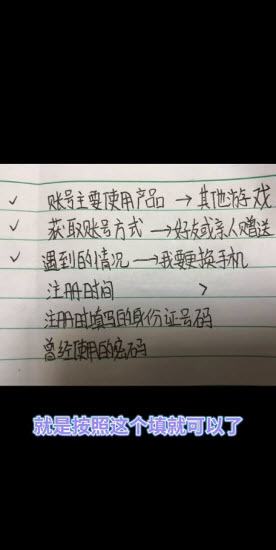 ✓ 账号主要使用产品 → 其他游戏
✓ 获取账号方式 → 好友或亲人赠送
✓ 遇到的情况 → 我要更换手机
注册时间 >
注册时填写的身份证号码
曾经使用的密码
就是按照这个填就可以了